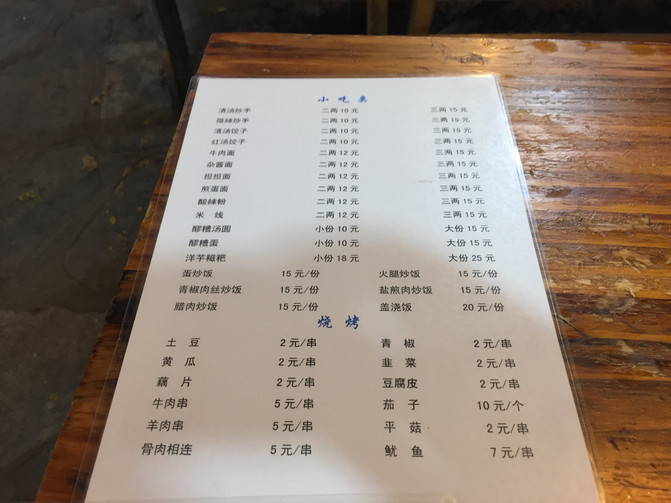 小吃类
清汤抄手 二两10元 三两15元
微辣抄手 二两10元 三两15元
清汤饺子 二两10元 三两15元
红汤饺子 二两10元 三两15元
牛肉面 二两12元 三两15元
杂酱面 二两12元 三两15元
担担面 二两12元 三两15元
煎蛋面 二两12元 三两15元
酸辣粉 二两12元 三两15元
米线 二两12元 三两15元
醪糟汤圆 小份10元 大份15元
醪糟蛋 小份10元 大份15元
洋芋糍粑 小份18元 大份25元
蛋炒饭 15元/份 火腿炒饭 15元/份
青椒肉丝炒饭 15元/份 盐煎肉炒饭 15元/份
腊肉炒饭 15元/份 盖浇饭 20元/份
烧烤
土豆 2元/串 青椒 2元/串
黄瓜 2元/串 韭菜 2元/串
藕片 2元/串 豆腐皮 2元/串
牛肉串 5元/串 茄子 10元/个
羊肉串 5元/串 平菇 2元/串
骨肉相连 5元/串 鱿鱼 7元/串